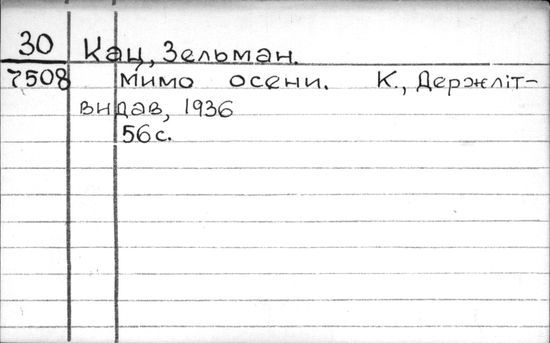 30 Кац, Зельман.
7508 мимо осени. К., Держліт-
видав, 1936
56 с.